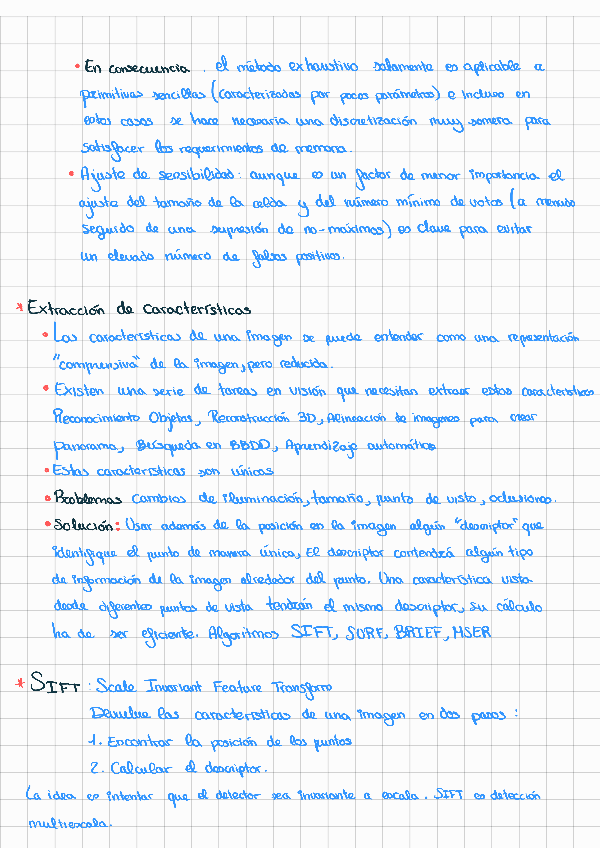 • En consecuencia, el método exhaustivo solamente es aplicable a
primitivas sencillas (caracterizadas por pocos parámetros) e incluso en
estos casos se hace necesaria una discretización muy somera para
satisfacer los requerimientos de memoria.
• Ajuste de sensibilidad: aunque es un factor de menor importancia el
ajuste del tamaño de la celda y del número mínimo de votos (a menudo
seguido de una supresión de no-máximos) es clave para evitar
un elevado número de falsos positivos.
* Extracción de características
• Las características de una imagen se puede entender como una representación
"comprensiva" de la imagen, pero reducida.
• Existen una serie de tareas en visión que necesitan extraer estas características
Reconocimiento Objetos, Reconstrucción 3D, Alineación de imagenes para crear
panorama, Búsqueda en BBDD, Aprendizaje automático
• Estas características son únicas
• Problemas cambios de iluminación, tamaño, punto de vista, oclusiones.
• Solución: Usar además de la posición en la imagen algún "descriptor" que
identifique el punto de manera única, El descriptor contendrá algún tipo
de información de la imagen alrededor del punto. Una característica vista
desde diferentes puntos de vista tendrán el mismo descriptor, su cálculo
ha de ser eficiente. Algoritmos SIFT, SURF, BRIEF, MSER
* SIFT: Scale Invariant Feature Transform
Devuelve las características de una imagen en dos pasos:
1. Encontrar la posición de los puntos
2. Calcular el descriptor.
La idea es intentar que el detector sea invariante a escala. SIFT es detección
multiescala.